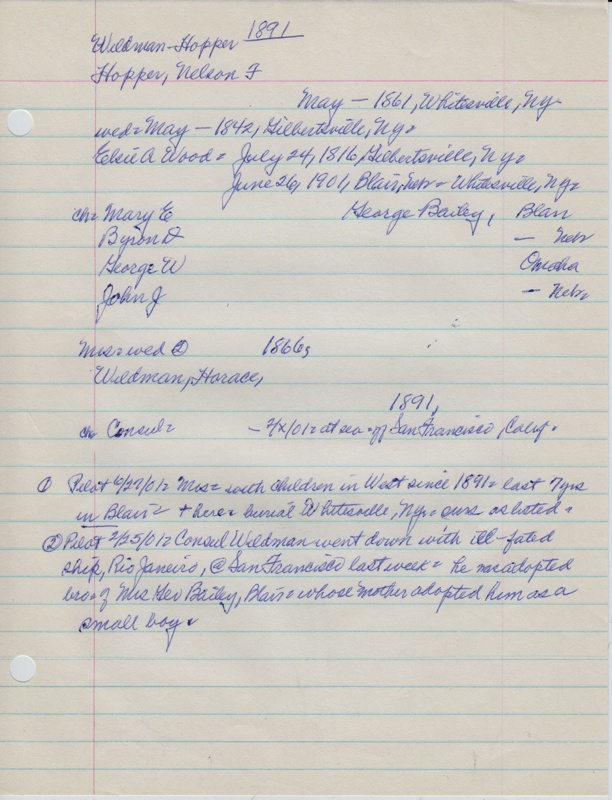 Wildman-Hopper 1891
Hopper, Nelson F
May - 1861, Whitesville, Ny.
wed = May - 1842, Gilbertsville, Ny =
Elsie A Wood = July 24, 1816, Gilbertsville, Ny =
June 26, 1901, Blair, Neb = Whitesville, Ny =
ch = Mary E George Bailey, Blair
Byron D - Nebr
George W Omaha
John J - Nebr
Mrs = wed ② 1866;
Wildman, Horace,
1891,
ch Consul = - 2/x/01 = at sea = off San Francisco, Calif.
① Pilot 6/27/01 = Mrs = with children in West since 1891 = last 7 yrs
in Blair = + here = burial Whitesville, Ny = survs as listed =
② Pilot 2/25/01 = Consul Wildman went down with ill-fated
ship, Rio Janeiro, @ San Francisco last week = he was adopted
bro = of Mrs Geo Bailey, Blair = whose mother adopted him as a
small boy.